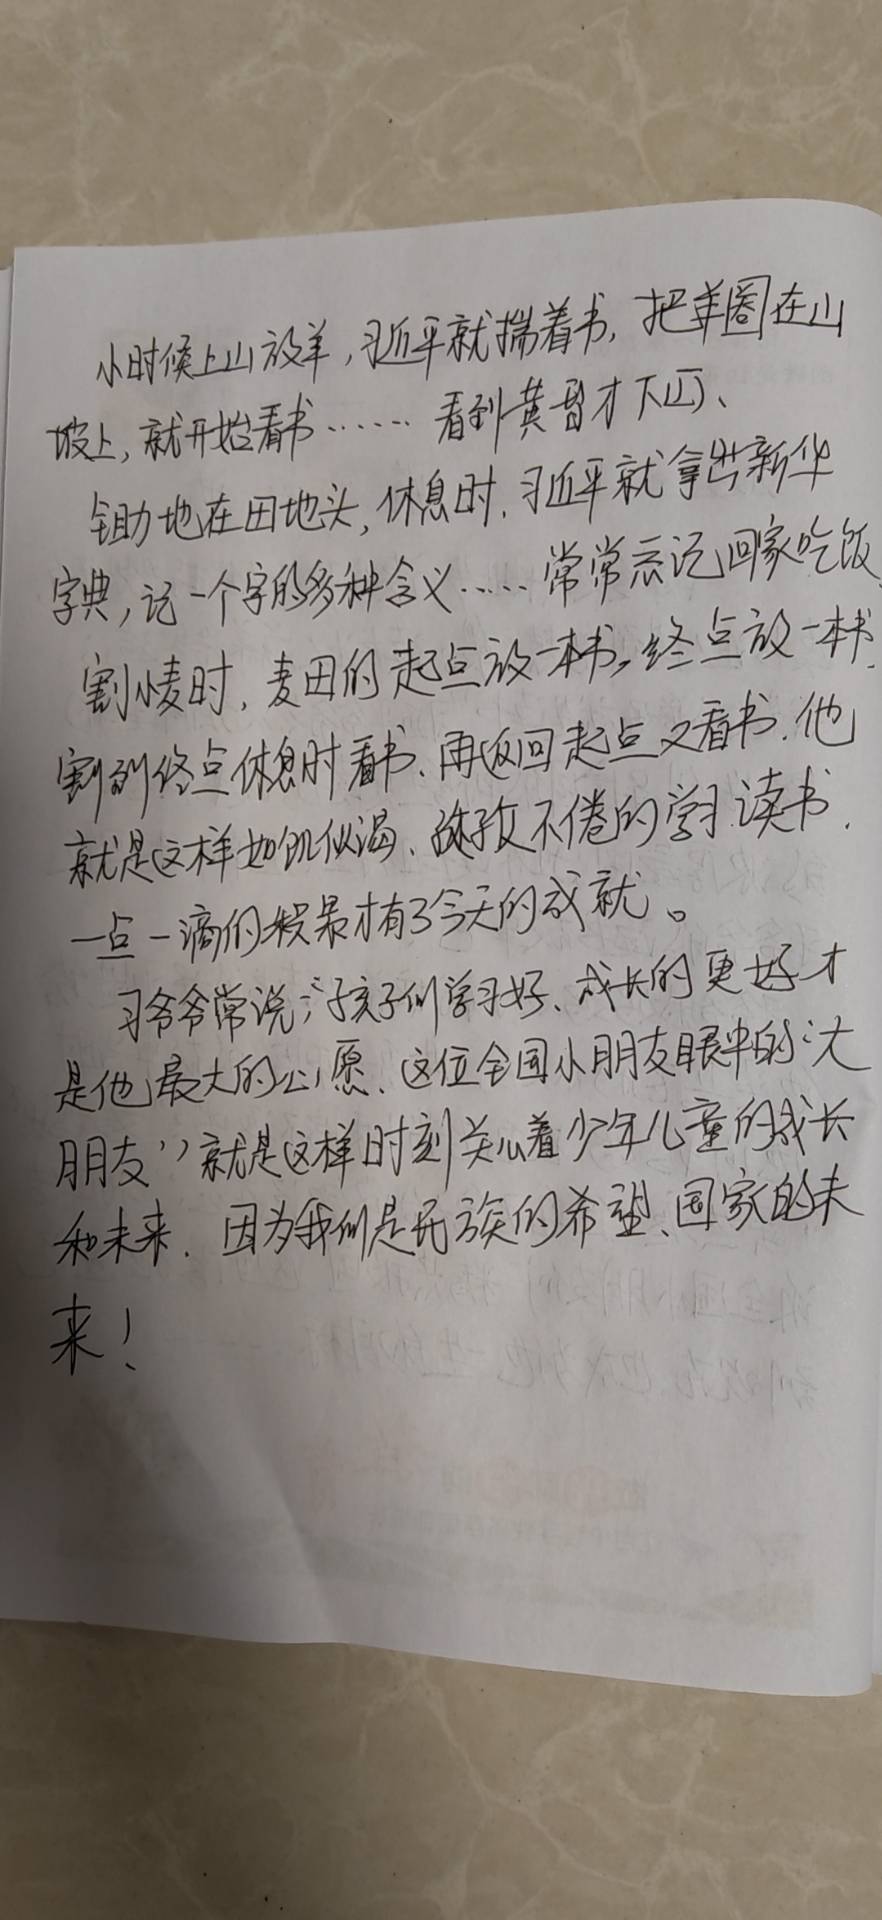 小时候上山放羊,习近平就揣着书,把羊圈在山
坡上,就开始看书……看到黄昏才下山、
锄地在田地头,休息时.习近平就拿出新华
字典,记一个字的多种含义……常常忘记回家吃饭、
割麦时,麦田的起点放一本书,终点放一本书.
割到终点休息时看书、再返回起点又看书.他
就是这样如饥似渴、孜孜不倦的学习读书.
一点一滴的积累才有了今天的成就。
习爷爷常说:“孩子们学习好、成长的更好才
是他最大的心愿、这位全国小朋友眼中的“大
朋友”就是这样时刻关心着少年儿童的成长
和未来.因为我们是民族的希望、国家的未
来!